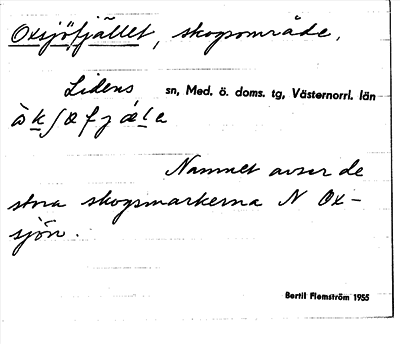 Oxsjöfjället, skogsområde.
Lidens sn, Med. ö. doms. tg, Västernorrl. län
Namnet avser de
stora skogsmarkerna N Ox-
sjön.
Bertil Flemström 1955